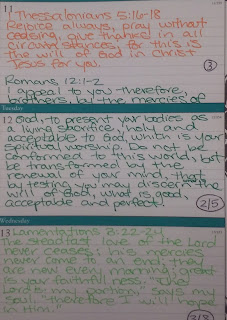 11
1 Thessalonians 5:16-18
Rejoice always, pray without
ceasing, give thanks in all
circumstances, for this is
the will of God in Christ
Jesus for you.
3
Romans 12:1-2
I appeal to you therefore,
brothers, by the mercies of
Tuesday
12 God, to present your bodies as
a living sacrifice, holy and
acceptable to God, which is your
spiritual worship. Do not be
conformed to this world, but
be transformed by the
renewal of your mind, that
by testing you may discern the
will of God, what is good,
acceptable and perfect.
2/5
Wednesday
13 Lamentations 3:22-24
The steadfast love of the Lord
never ceases; his mercies
never come to an end; they
are new every morning; great
is your faithfulness. "The
Lord is my portion," says my
soul, "therefore I will hope
in Him."